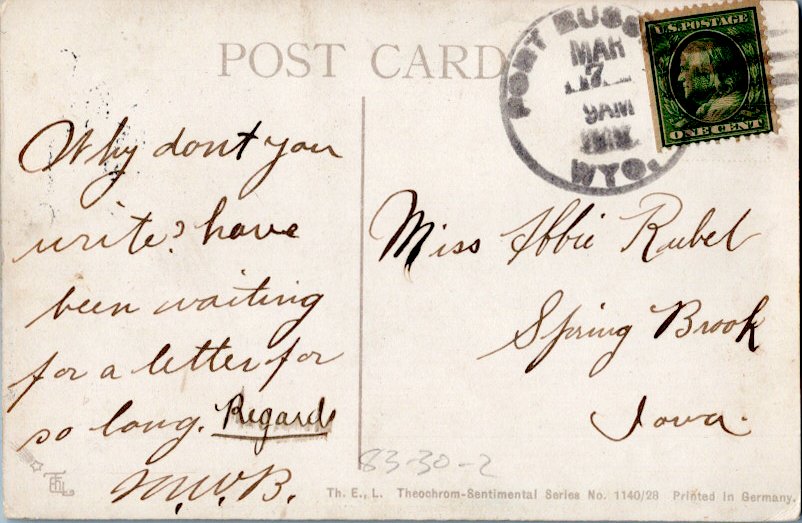 POST CARD
MAR
7
9AM
WYO.
U.S. POSTAGE
ONE CENT
Why don't you
write? have
been waiting
for a letter for
so long. Regards
M.W.B.
Miss Abbie Rubel
Spring Brook
Iowa.
83-30-2
Th. E., L. Theochrom-Sentimental Series No. 1140/28 Printed in Germany.